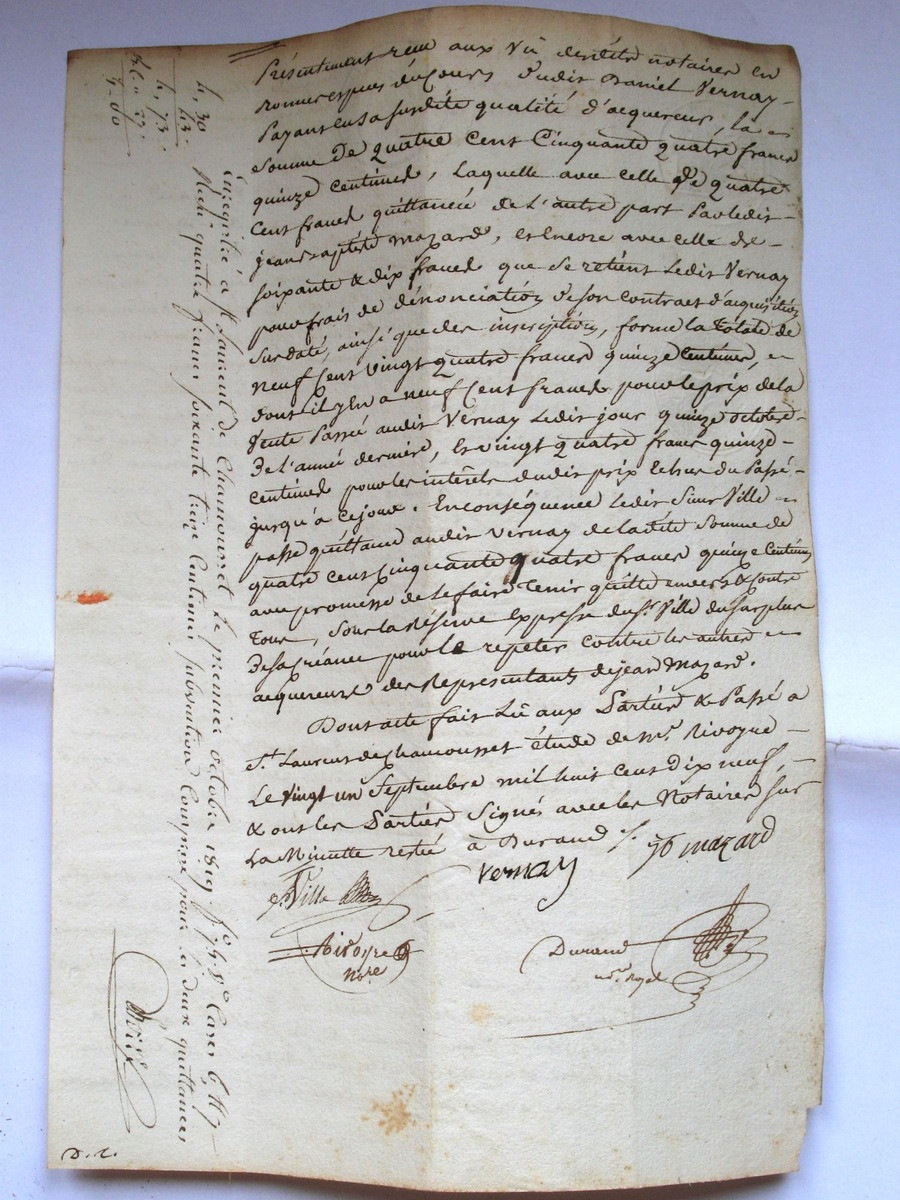 Présentiment reçu aux vu desdits notaires en
pieces du Cours dudit Daniel Vernay
Payant en sa susdite qualité d'acquereur, la
Somme De quatre cent Cinquante quatre francs
quinze centimes, Laquelle avec celle de quatre
Cent francs quittancée de L'autre part Par ledit
jean Baptiste mazard, et Encore avec celle de
soixante & dix francs que se retient Ledit Vernay
pour frais de dénonciation de son contract d'acquisition
Sus daté, ainsi que des inscriptions, forme la totale de
neuf Cent vingt quatre francs quinze Centimes,
dont il y en a neuf Cent francs pour le prix de la
Vente Passée audit Vernay Ledit jour quinze octobre
De L'année dernière, Et vingt quatre francs quinze
centimes pour les intérêts dudit prix Echus du Passé
jusqu'à ce jour. En conséquence Ledit Sieur Ville
passe quittance audit Vernay de ladite Somme de
quatre cent cinquante quatre francs quinze Centimes
avec promesse de Le faire Tenir quitte envers & contre
Tous, Sous la Réserve Expresse du Sr. Ville du surplus
De sa Créance pour le repeter contre les autres
acquereurs des Représentants de jean Mazard.
Dont acte fait Lû aux Parties & Passé a
St. Laurent de Chamousset étude de Me. Rivoyre
Le vingt un Septembre mil huit cent Dix neuf,
& ont les Parties Signés avec les Notaires sur
La Minutte restée à Durand
Vernay
JB mazard
Ville
Rivoyre
nore
Durand
nore. Royal
Enregistré à St Laurent de Chamousset le premier octobre 1819 fo 74 Vo Cases 6, et 7
Reçu quatre francs soixante treize Centimes subvention Comprise pour les deux quittances
4, 30
43
4, 73
D. C.